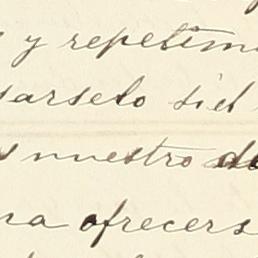 y repetim
sarselo si el
s nuestro de
na ofrecers